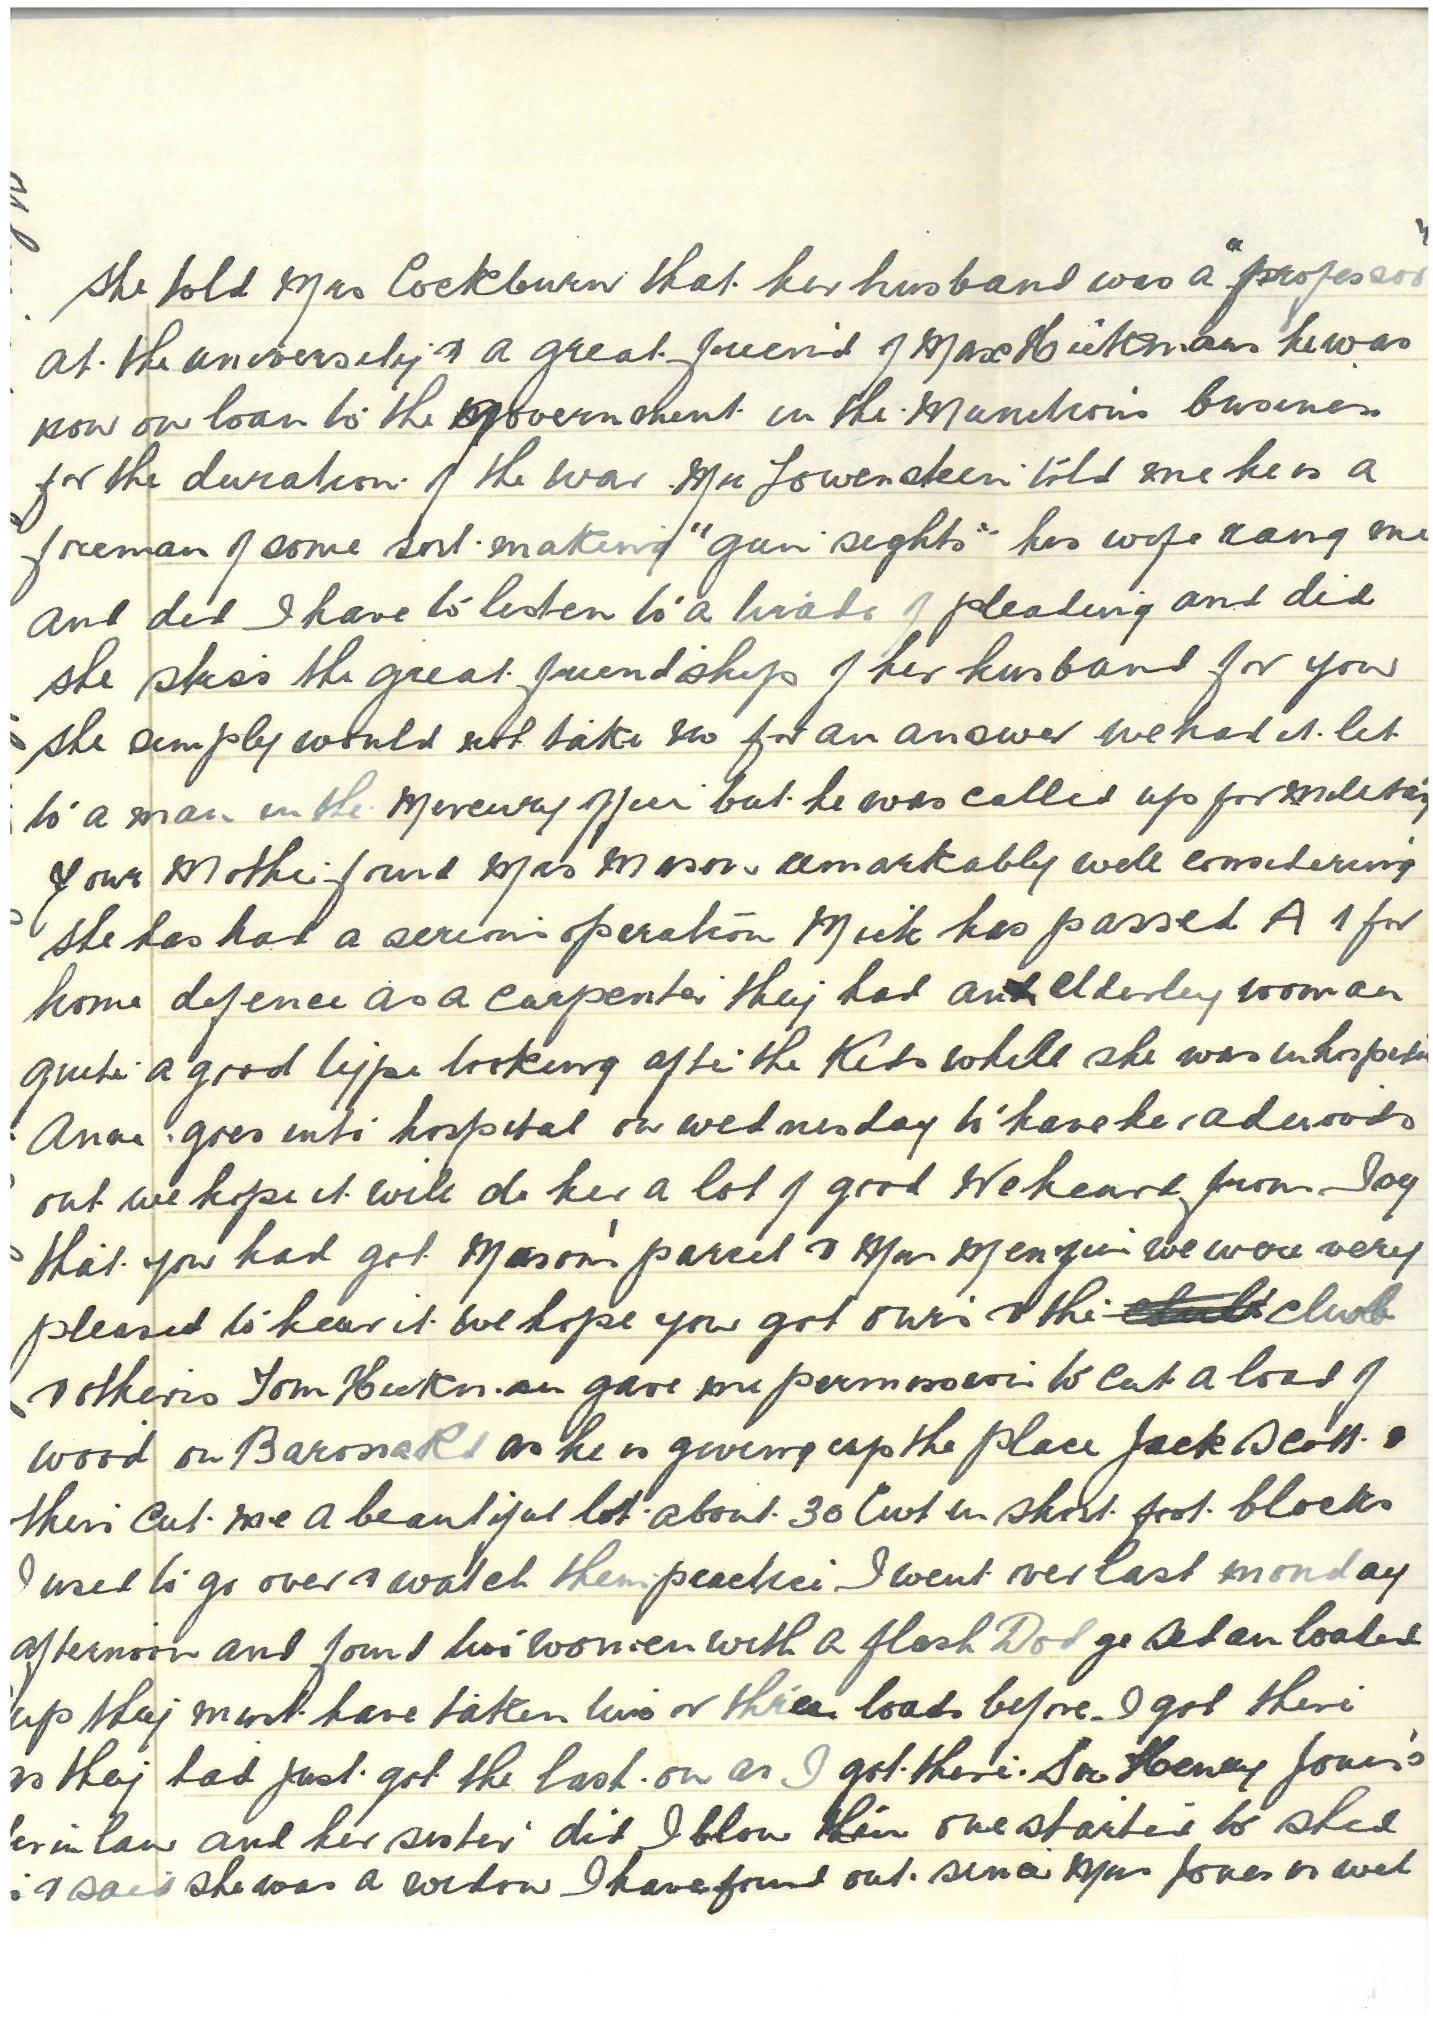 She told Mrs Cockburn that her husband was a "professor"
at the university & a great friend of Max Hickmans he was
now on loan to the government in the Munitions business
for the duration of the war Mr Lowensteen told me he is a
foreman of some sort making "gun sights" his wife rang me
and did I have to listen to a tirade of pleading and did
she stress the great friendship of her husband for you
she simply would not take no for an answer we had it let
to a man in the Mercury office but he was called up for military
Your Mother found Mrs Mason remarkably well considering
she has had a serious operation Mick has passed A 1 for
home defence as a carpenter they had an elderley woman
quite a good type looking after the Kids while she was in hospital
Anne goes into hospital on wednesday to have her adenoids
out we hope it will do her a lot of good We heard from Joy
that you had got Mason's parcel & Mrs Menzies we were very
pleased to hear it we hope you got ours & the club
& others Tom Hickman gave me permission to cut a load of
wood on as he is giving up the place Jack Scott &
them cut me a beautiful lot about 30 Cwt in short foot blocks
I used to go over & watch them practice I went over last monday
afternoon and found two women with a flash Dodge Sedan loaded
up they must have taken two or three loads before I got there
as they had just got the last on as I got there. Sir Henry Jones's
in law and her sister did I blow them one started to shed
& said she was a widow I have found out since Mrs Jones is well